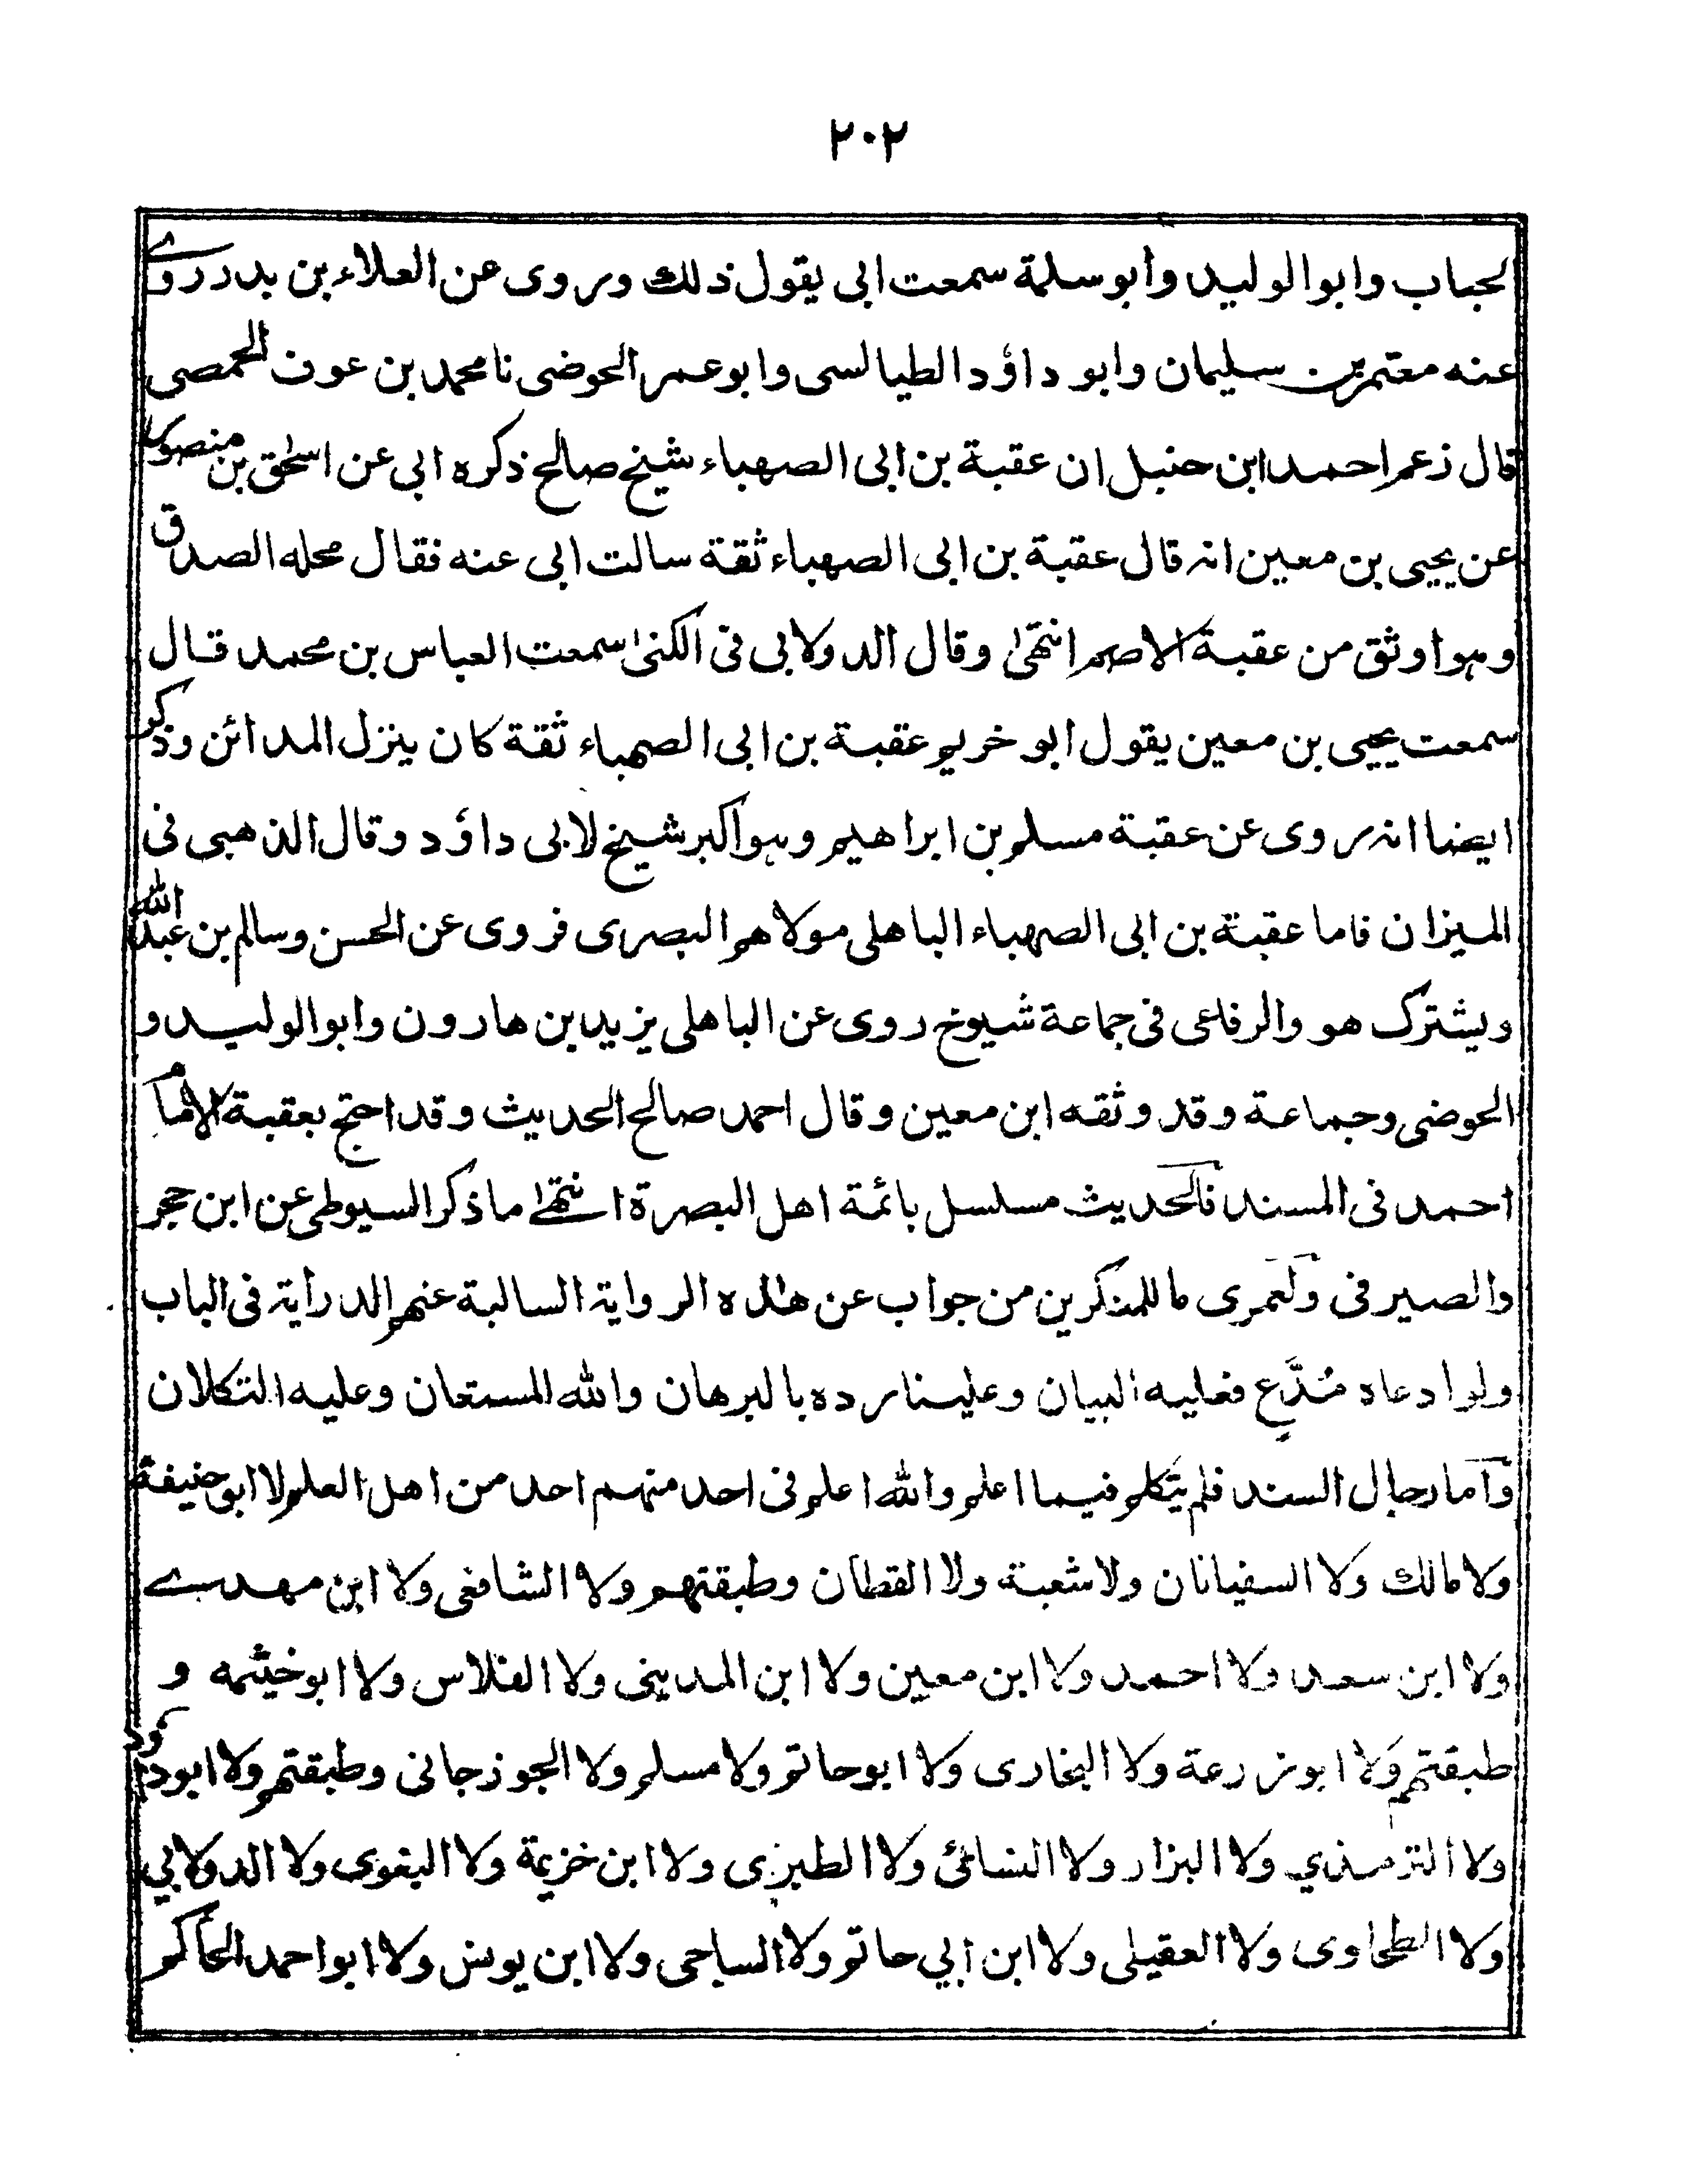 ٢٠٢
الحباب وابو الوليد وأبو سلمة سمعت ابى يقول ذلك وروى عن العلاء بن بدر روے
عنه معتمر بن سليمان وابو داؤد الطيالسى وابو عمر الحوضى نا محمد بن عوف الحمصى
قال زعم احمد ابن حنبل ان عقبة بن ابى الصهباء شيخ صالح ذكره ابى عن اسحٰق بن منصور
عن يحيى بن معين انه قال عقبة بن ابى الصهباء ثقة سالت ابى عنه فقال محله الصدق
وهو اوثق من عقبة الاصم انتهىٰ وقال الدولابى فى الكنىٰ سمعت العباس بن محمد قال
سمعت يحيى بن معين يقول ابو خريم عقبة بن ابى الصهباء ثقة كان ينزل المدائن وذكر
ايضا انه روى عن عقبة مسلم بن ابراهيم وهو اكبر شيخ لابى داؤد وقال الذهبى فى
الميزان فاما عقبة بن ابى الصهباء الباهلى مولاهم البصرى فروى عن الحسن وسالم بن عبد الله
ويشترك هو والرفاعى فى جماعة شيوخ روى عن الباهلى يزيد بن هارون وابو الوليد و
الحوضى وجماعة وقد وثقه ابن معين وقال احمد صالح الحديث وقد احتج بعقبة الامام
احمد فى المسند فالحديث مسلسل بائمة اهل البصرة انتهےٰ ما ذكر السيوطى عن ابن حجر
والصيرفى ولعمرى ما للمنكرين من جواب عن هٰذه الرواية السالبة عنهم الدراية فى الباب
ولو ادعاه مُدَّعٍ فعليه البيان وعلينا رده بالبرهان والله المستعان وعليه التكلان
وآما رجال السند فلم يتكلم فيما اعلم والله اعلم فى احد منهم احد من اهل العلم لا ابو حنيفة
ولا مالك ولا السفيانان ولا شعبة ولا القطان وطبقتهم ولا الشافعى ولا ابن مهدے
ولا ابن سعد ولا احمد ولا ابن معين ولا ابن المدينى ولا الفلاس ولا ابو خيثمه و
طبقتهم ولا ابو زرعة ولا البخارى ولا ابو حاتم ولا مسلم ولا الجوزجانى وطبقتهم ولا ابو داؤد
ولا الترمذي ولا البزار ولا النسائى ولا الطبرى ولا ابن خزيمة ولا البغوى ولا الدولابي
ولا الطحاوى ولا العقيلى ولا ابن ابي حاتم ولا الساجى ولا ابن يونس ولا ابو احمد الحاكم